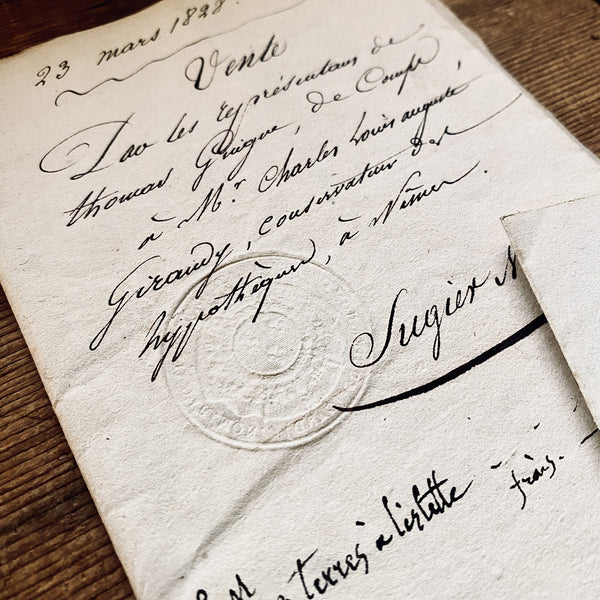 23 mars 1828.
Vente
Par les représentans de
thomas Guigue, de Comps,
à Mr. Charles Louis auguste
Giraudy, conservateur des
hypothèques, à Nîmes.
Sugier N
terres à
frais.